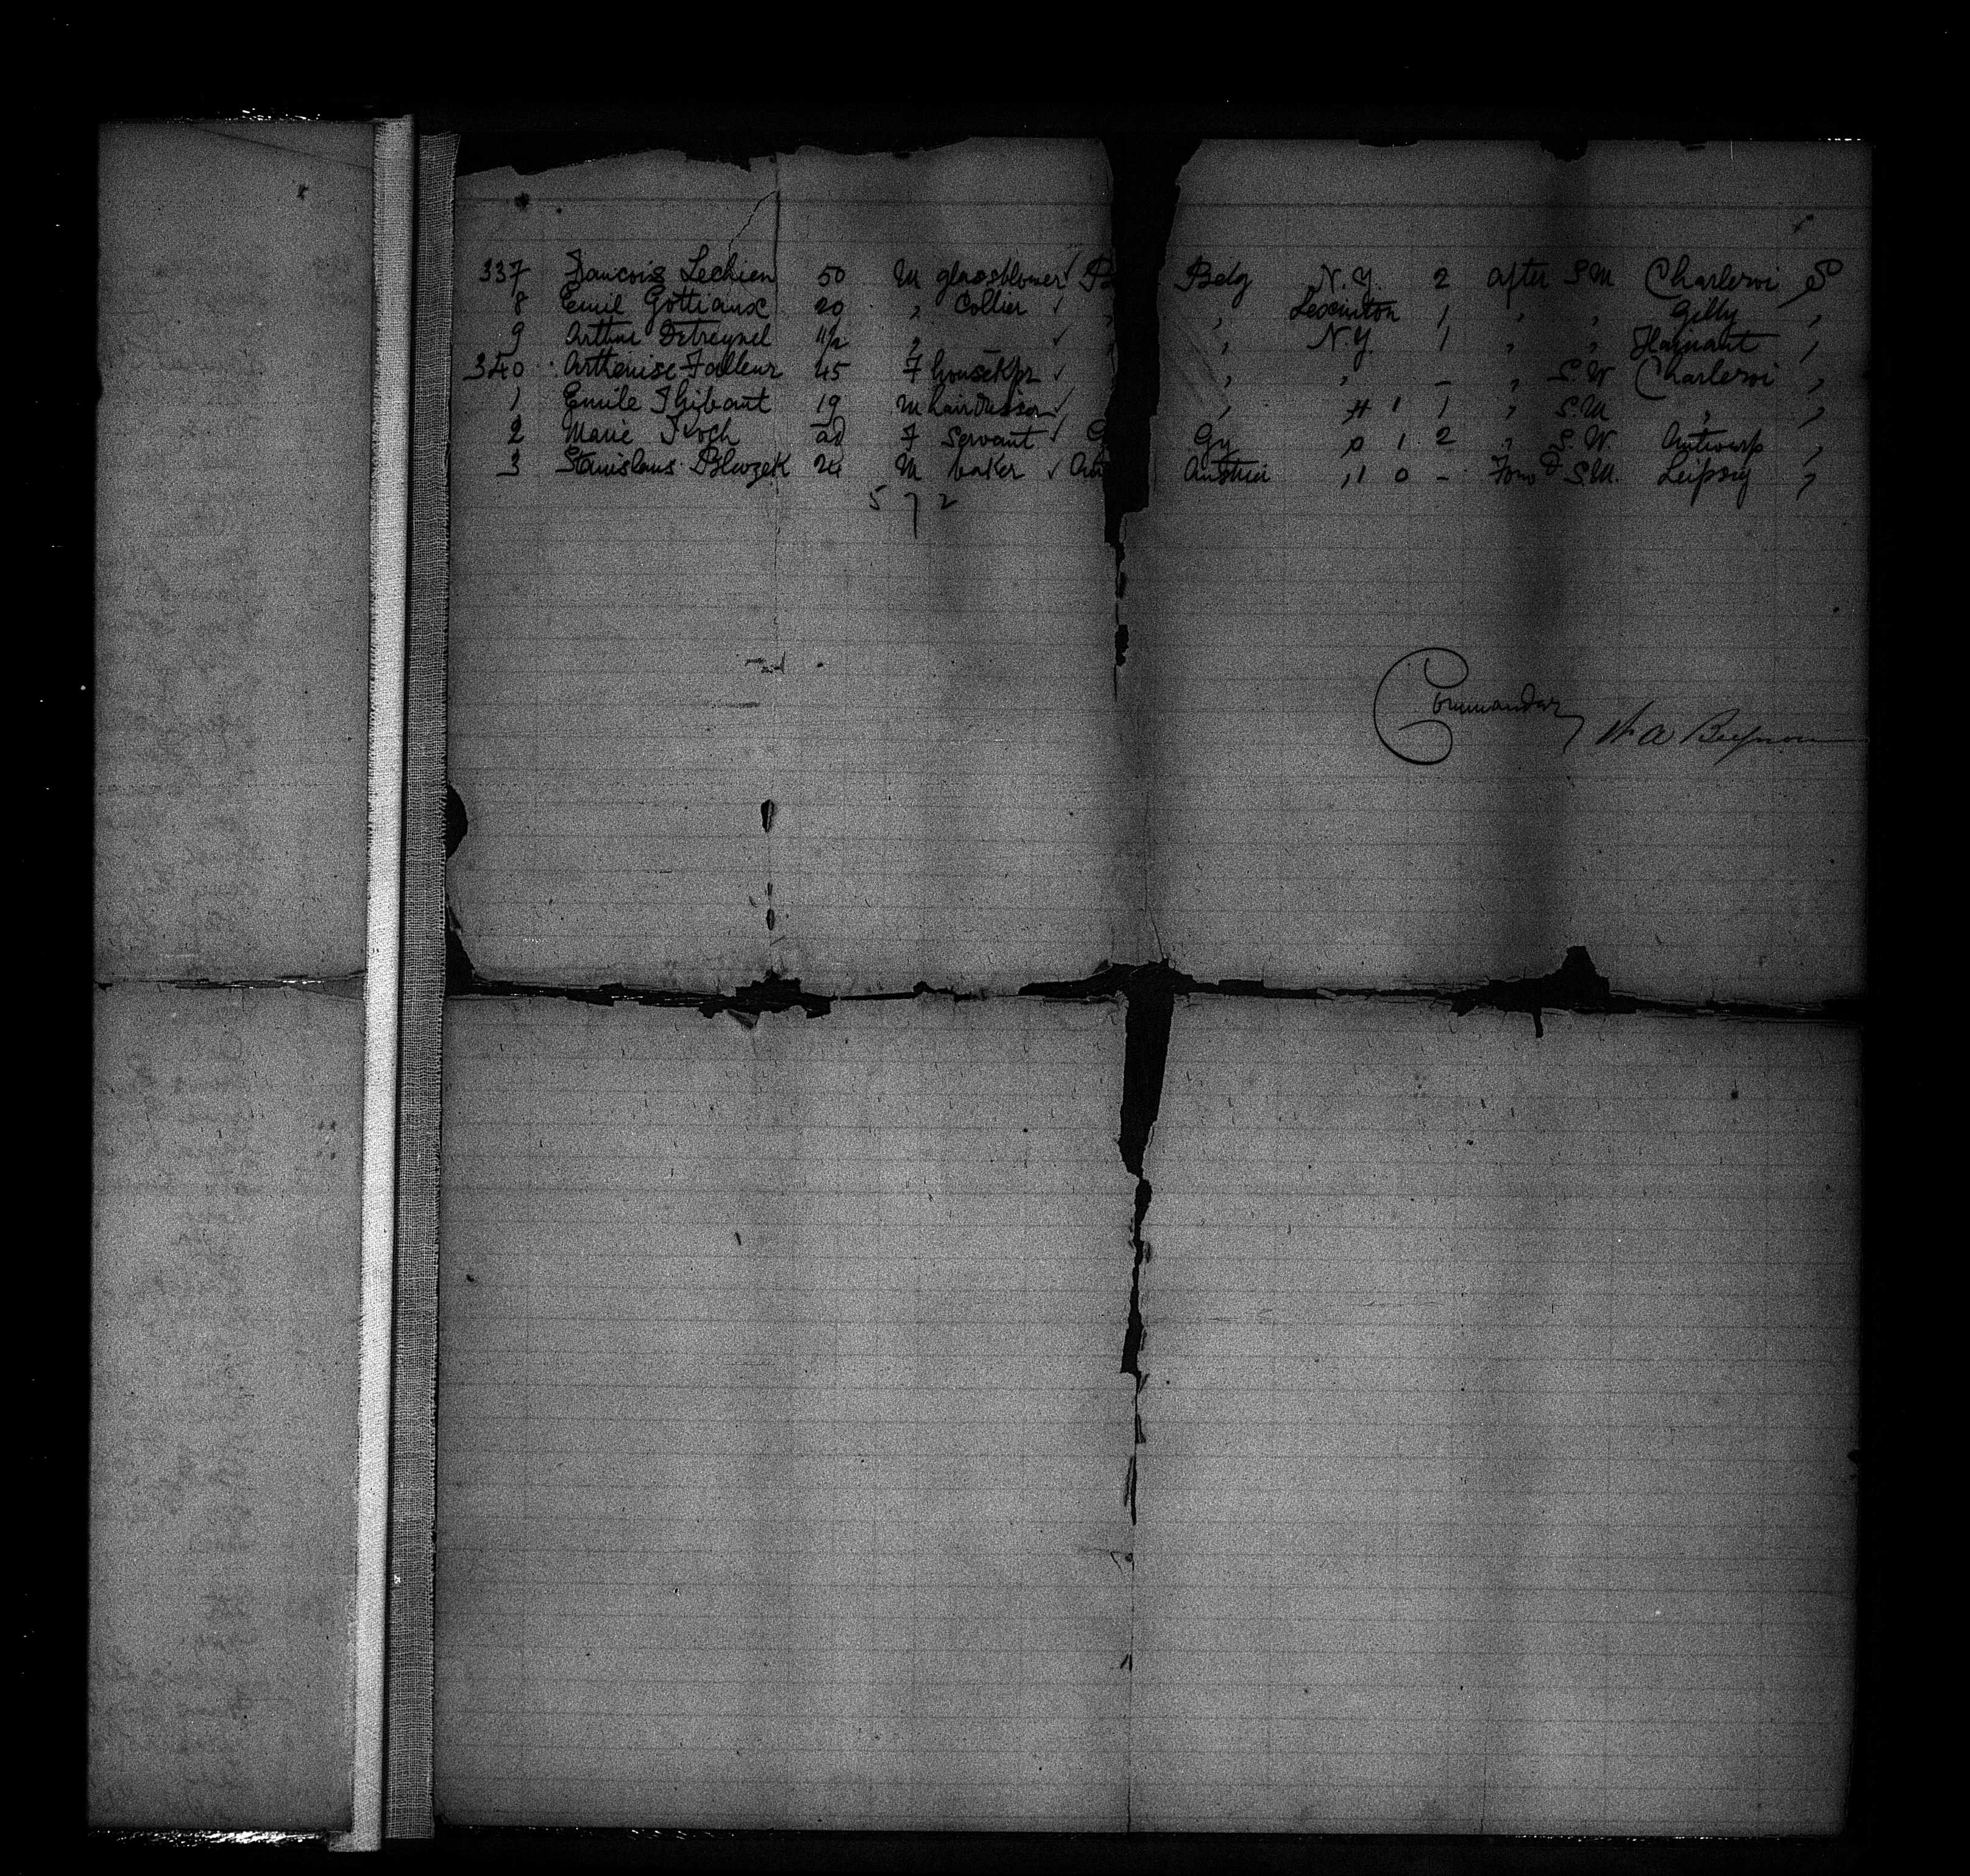 337 Francois Lechien 50 M glassblower ✓ Be Belg N.Y. 2 after S M Charleroi S
8 Emil Gottiaux 20 " Collier ✓ " " Lexinton 1 " " Gilly "
9 Arthur Detreynel 11/2 " ✓ " " N.Y. 1 " " Haynant "
340 Arthemise Falleur 45 F housekpr ✓ " " - " S.W Charleroi "
1 Emile Thibaut 19 M hairdresser ✓ " 1 1 " S.M " "
2 Marie Koch F servant ✓ G Gy 0 1 2 " S.W. Antwerp "
3 Stanislaus 24 M baker ✓ Au Austria " 1 0 - Forw d S.M. Leipsig "
5 7 2
Commander